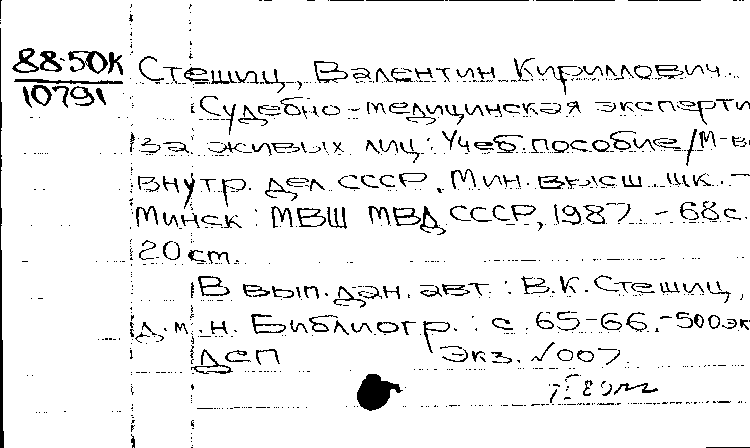 88-50К
10791
Стешиц, Валентин Кириллович.
Судебно-медицинская эксперти
за живых лиц: Учеб. пособие/М-во
внутр. дел СССР, Мин. высш. шк. –
Минск: МВШ МВД СССР, 1987. – 68 с.
20 см.
В вып. дан. авт.: В.К. Стешиц,
д.м.н. Библиогр.: с. 65-66. – 500 эк
ДСП Экз. №007.